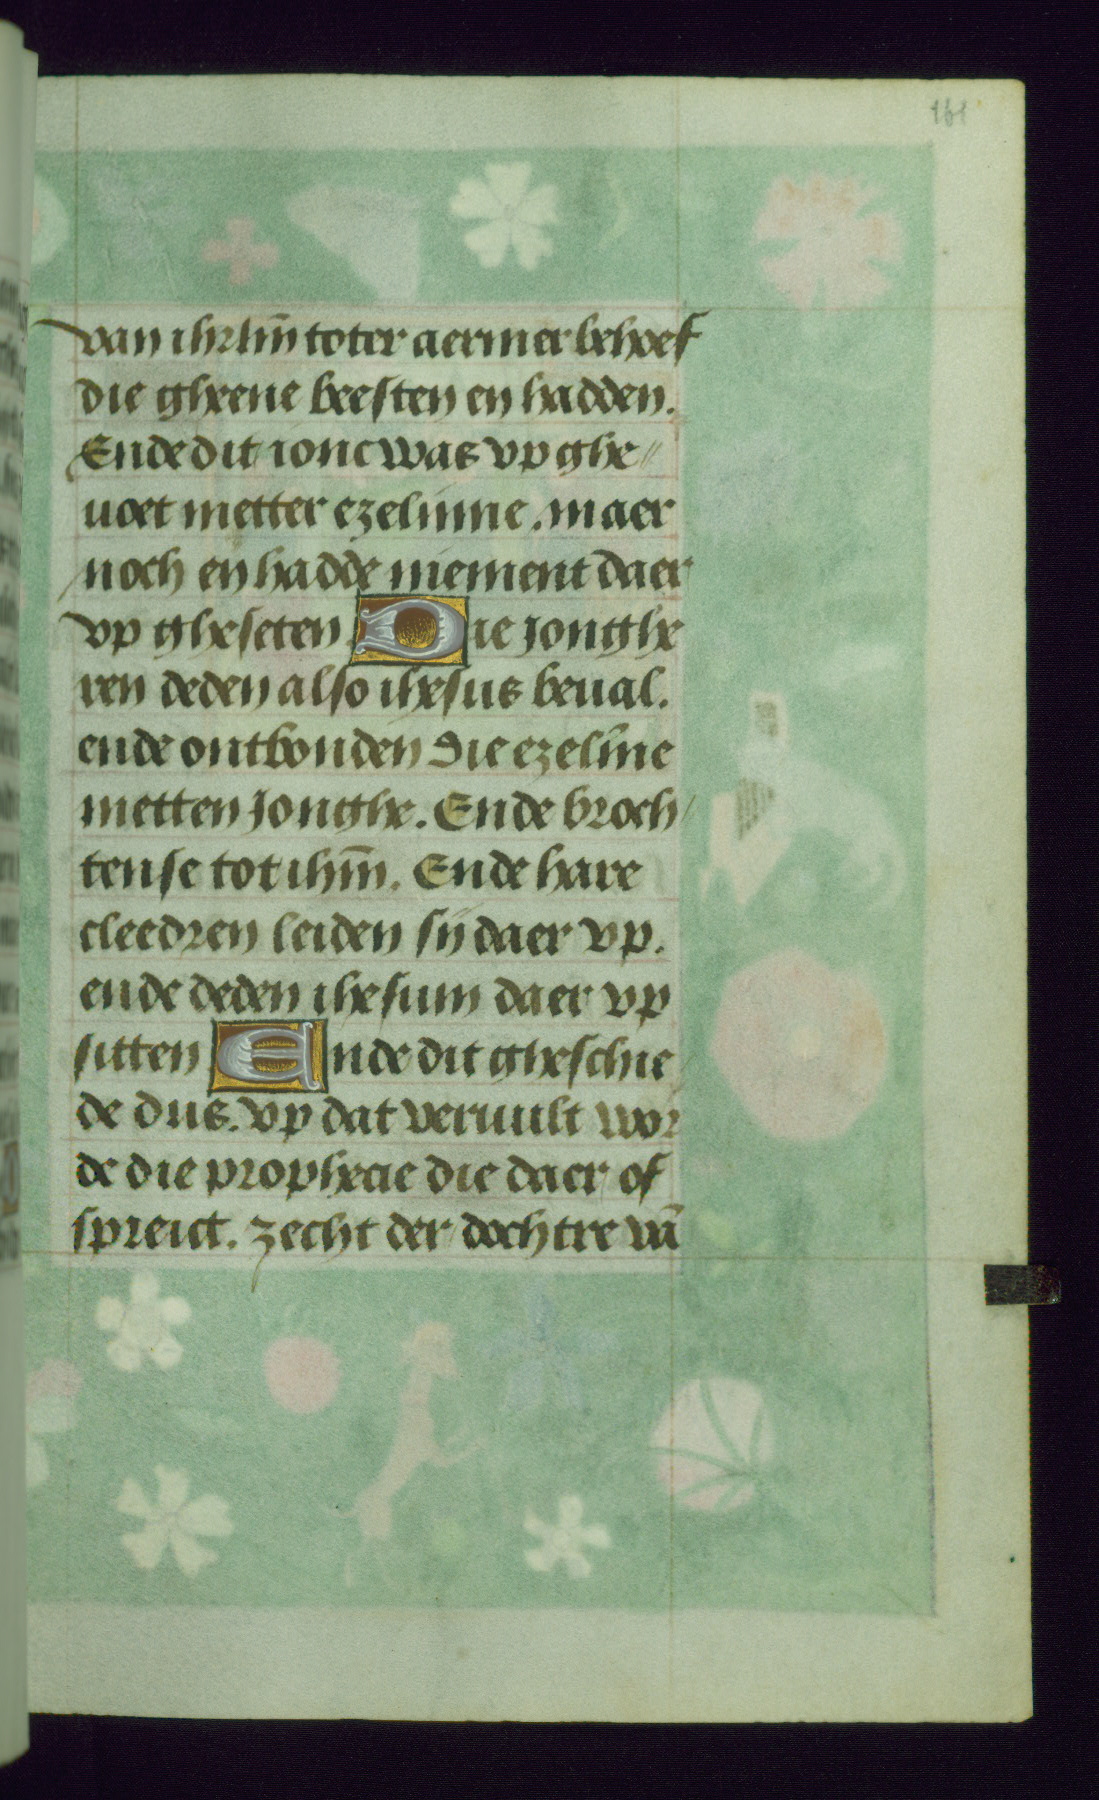 161
van ihrlm̄ toter aermer behoef
die gheene beesten en hadden.
Ende dit ionc was vp ghe//
uoet metter ezelinne. maer
noch en hadde niement daer
vp gheseten. Die jonghe
ren deden also ihesus beual.
ende ontbonden die ezelīne
metten jonghe. Ende broch/
tense tot ihm̄. Ende hare
cleedren leiden sij daer vp.
ende deden ihesum daer vp
sitten Ende dit gheschie
de dus. vp dat veruult wor
de die prophecie die daer of
spreict. zecht der dochtre vā